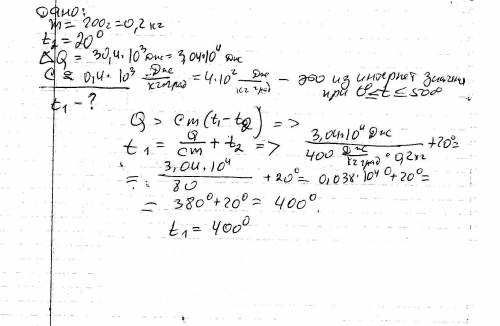 Дано:
m = 200г = 0,2 кг
t₂ = 20⁰
ΔQ = 30,4·10³ Дж = 3,04·10⁴ Дж
C ≈ 0,4·10³ Дж/кг град = 4·10² Дж/кг град - это из интернет значения
при t⁰ ≤ t ≤ 500⁰
t₁ - ?
Q = cm(t₁ - t₂) =>
t₁ = Q/cm + t₂ => 3,04·10⁴ Дж / 400 Дж/кг град · 0,2 кг + 20⁰ =
= 3,04·10⁴/80 + 20⁰ = 0,038·10⁴⁰ + 20⁰ =
= 380⁰ + 20⁰ = 400⁰.
t₁ = 400⁰